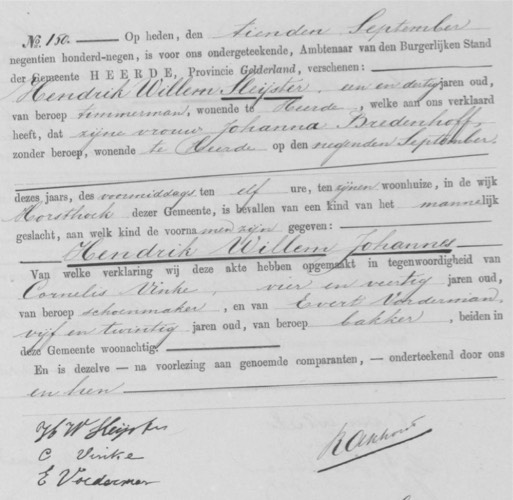 No. 150. Op heden, den tienden September
negentien honderd-negen, is voor ons ondergeteekende, Ambtenaar van den Burgerlijken Stand
der Gemeente HEERDE, Provincie Gelderland, verschenen:
Hendrik Willem Sleijster, een en dertig jaren oud,
van beroep timmerman, wonende te Heerde, welke aan ons verklaard
heeft, dat zijne vrouw Johanna Bredenhoff,
zonder beroep, wonende te Heerde op den negenden September,
dezes jaars, des voormiddags ten elf ure, ten zijnen woonhuize, in de wijk
Horsthoek dezer Gemeente, is bevallen van een kind van het mannelijk
geslacht, aan welk kind de voornamen zijn gegeven:
Hendrik Willem Johannes
Van welke verklaring wij deze akte hebben opgemaakt in tegenwoordigheid van
Cornelis Vinke, vier en veertig jaren oud,
van beroep schoenmaker, en van Evert Vorderman,
vijf en twintig jaren oud, van beroep bakker, beiden in
deze Gemeente woonachtig.
En is dezelve — na voorlezing aan genoemde comparanten, — onderteekend door ons
en hen
H W Sleijster
C Vinke
E Vorderman